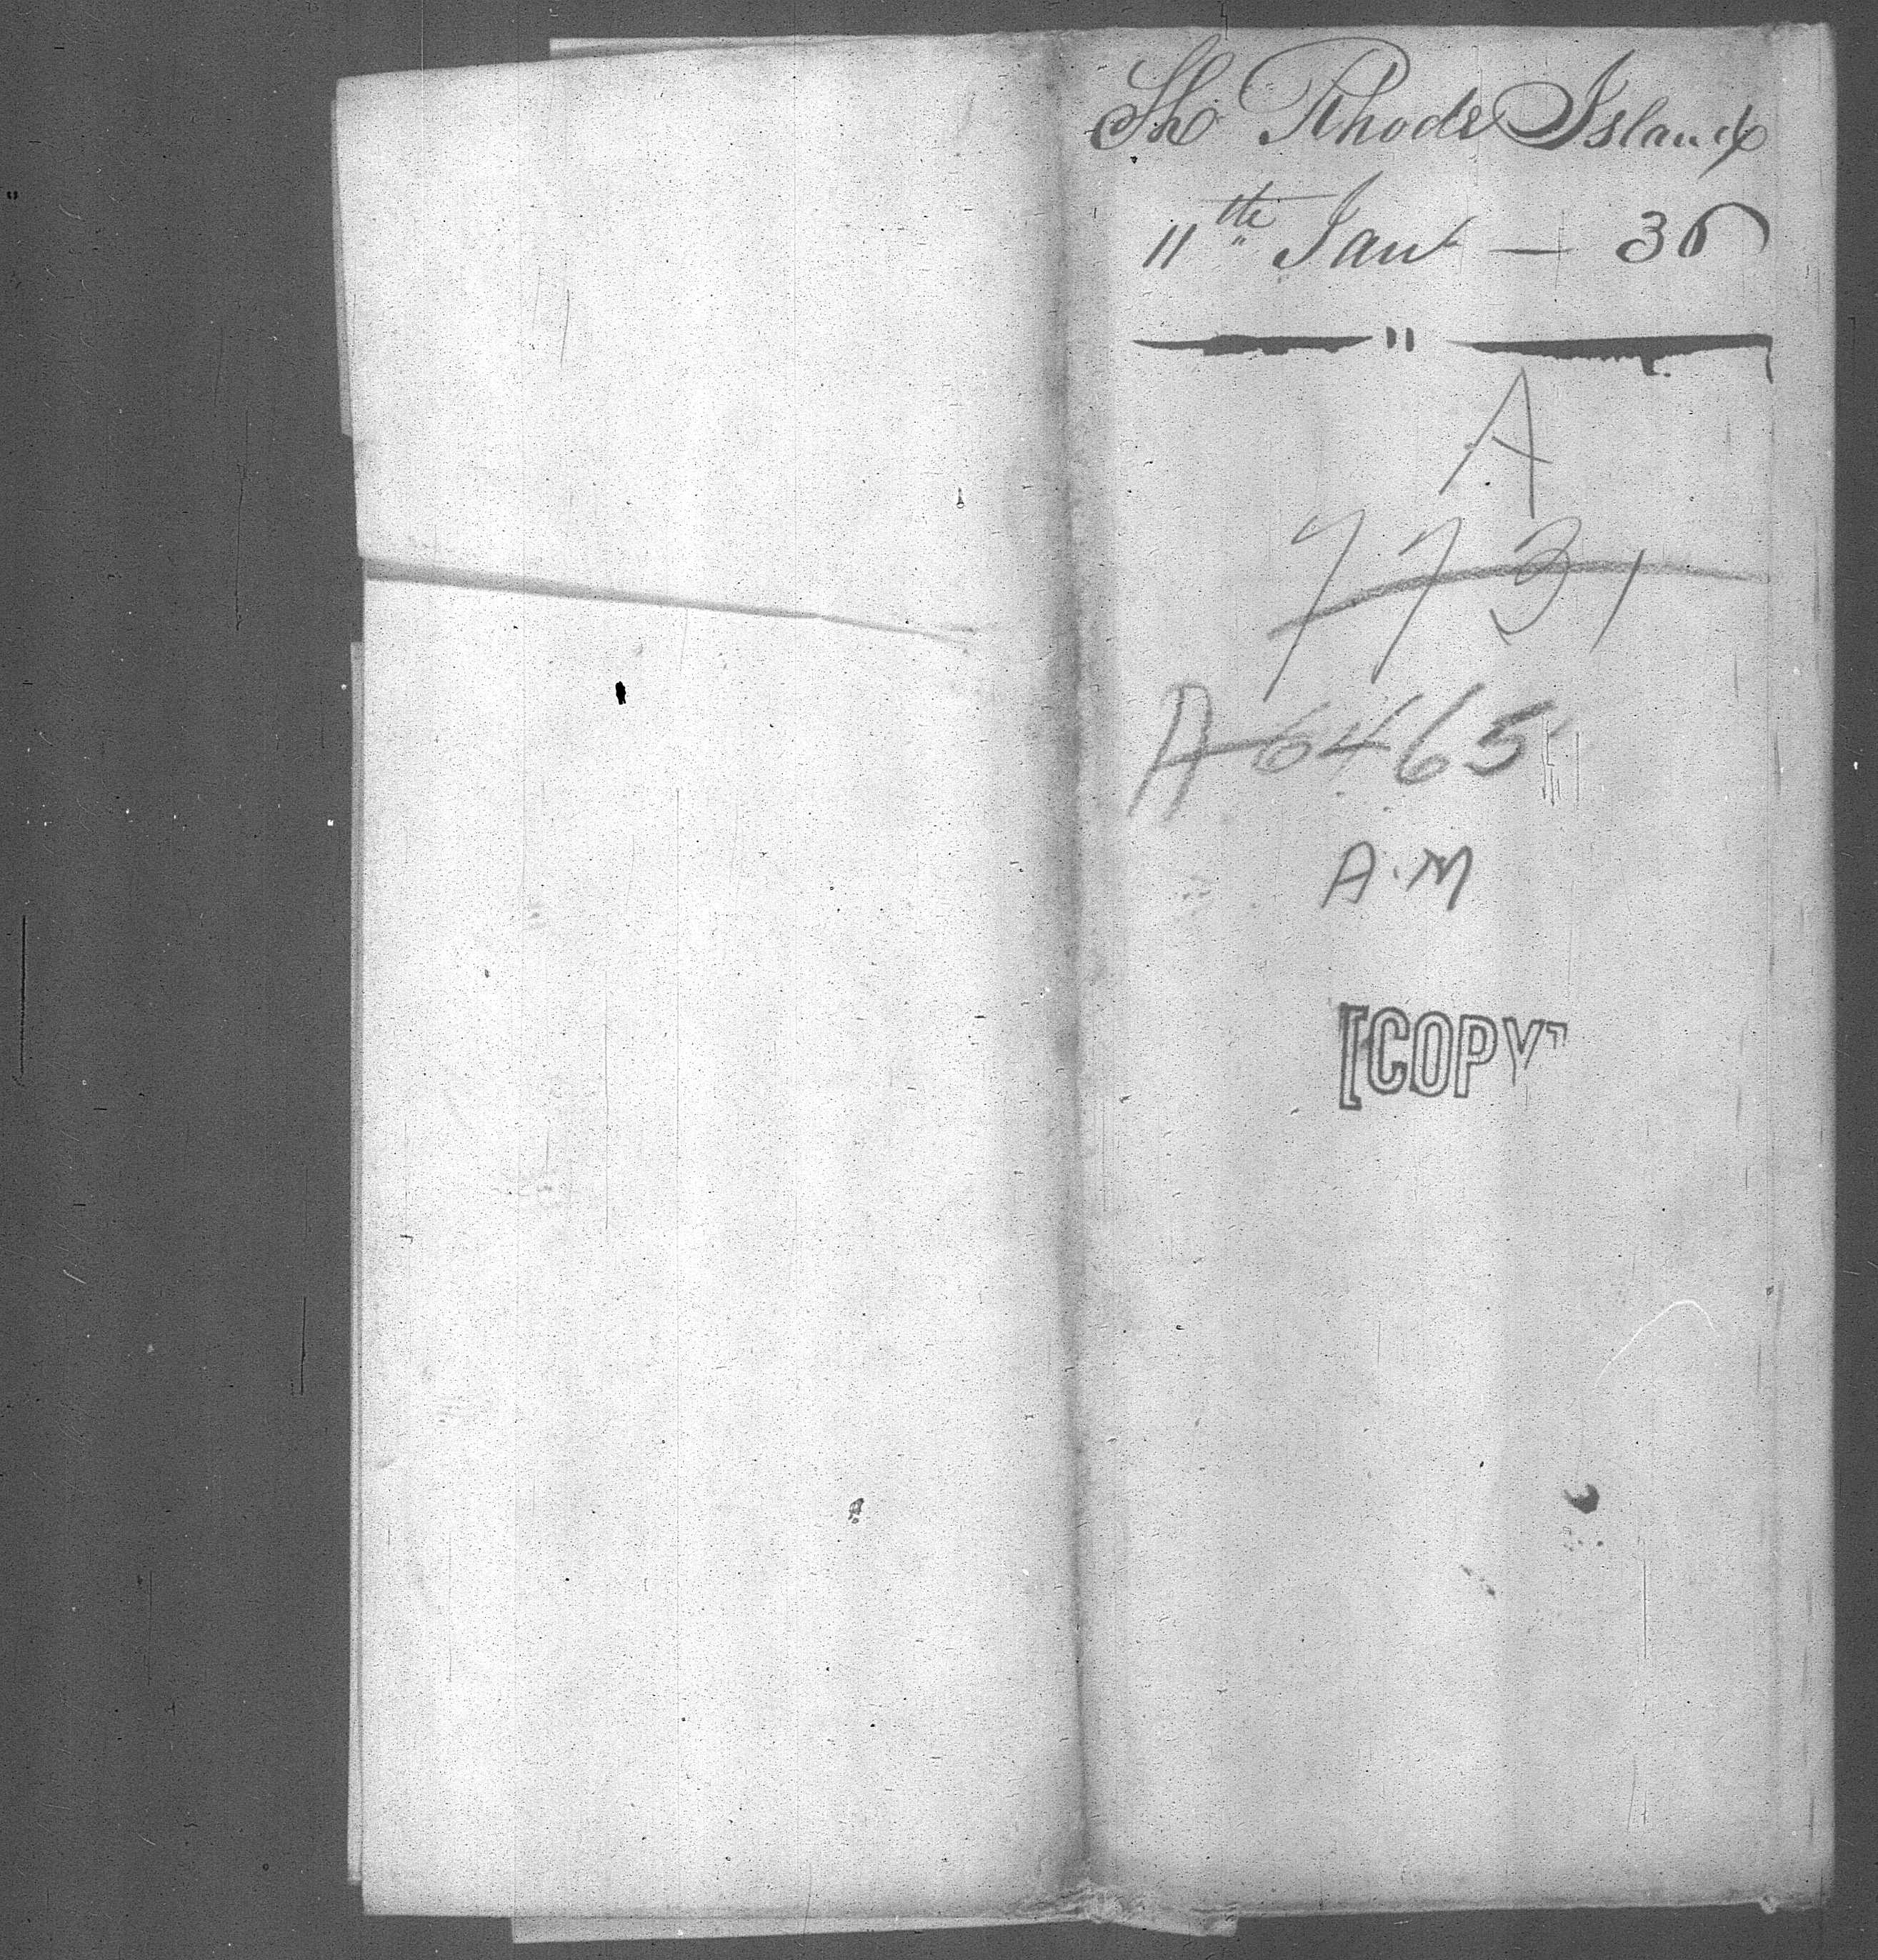 Sh Rhode Island
11th Jany — 36
"
A
7731
A 6465
A.M
[COPY]